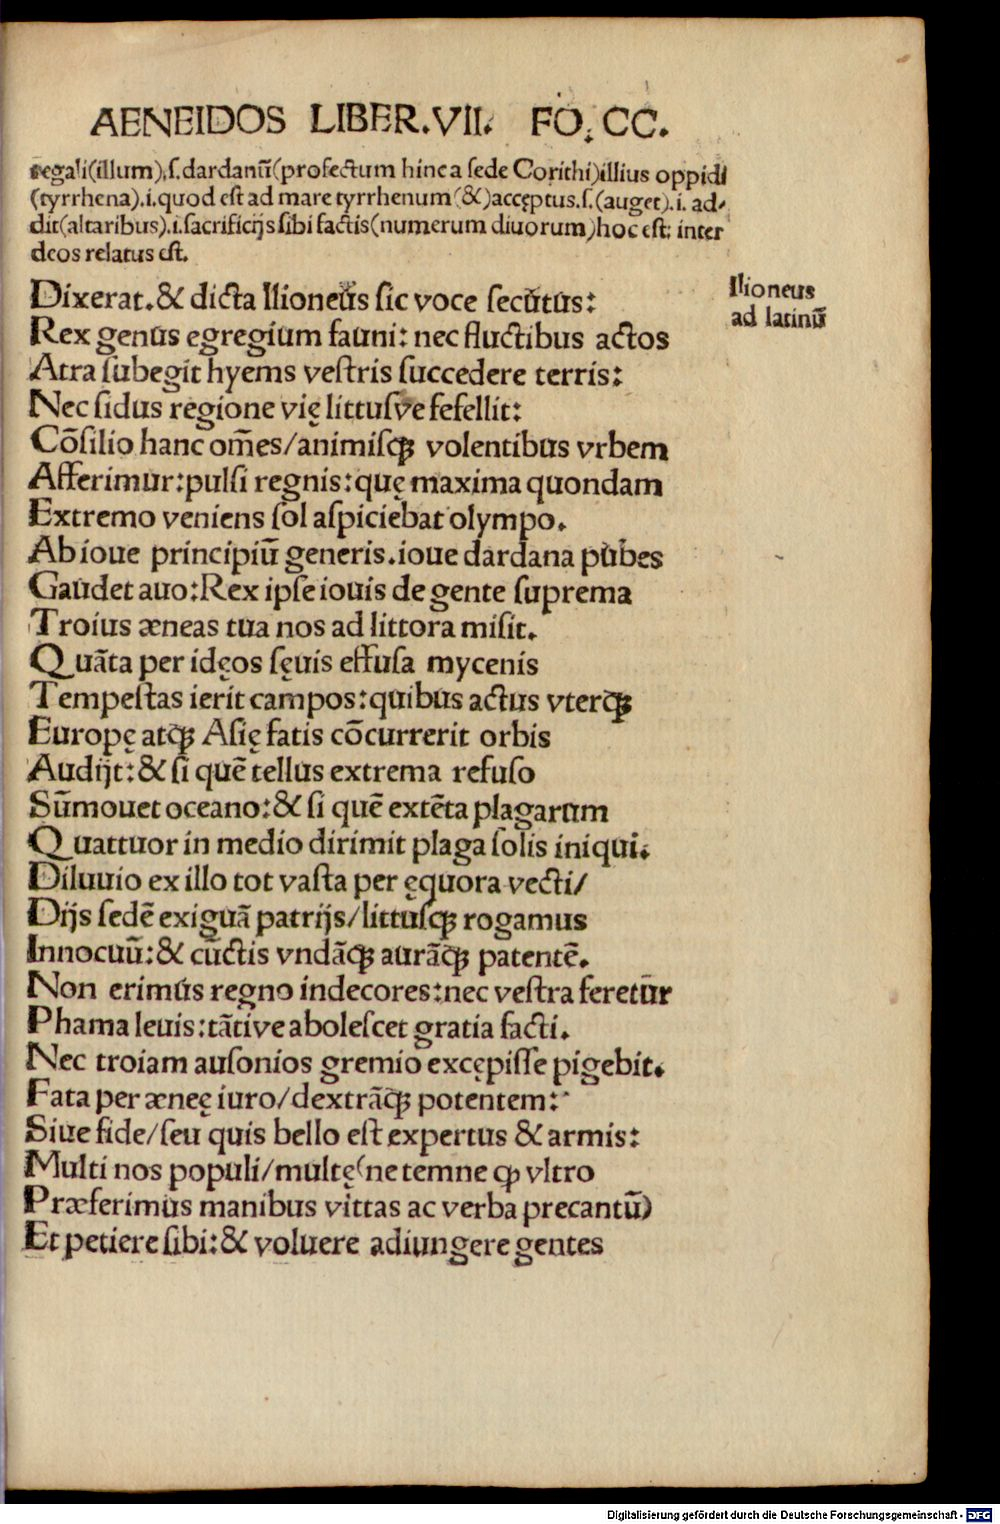 AENEIDOS LIBER.VII. FO. CC.
regali(illum).ſ.dardanū(profectum hinc a ſede Corithi)illius oppidi
(tyrrhena).i.quod eſt ad mare tyrrhenum (&)accęptus.ſ.(auget).i. ad-
dit(altaribus).i.ſacrificijs ſibi factis(numerum diuorum)hoc eſt: inter
deos relatus eſt.
Dixerat.& dicta Ilioneus ſic voce ſecutus:
Ilioneus
ad latinū
Rex genus egregium fauni: nec fluctibus actos
Atra ſubegit hyems veſtris ſuccedere terris:
Nec ſidus regione vię littuſve fefellit:
Cōſilio hanc om̄es/animiſqꝫ volentibus vrbem
Afferimur:pulſi regnis:quę maxima quondam
Extremo veniens ſol aſpiciebat olympo.
Ab ioue principiū generis.ioue dardana pubes
Gaudet auo:Rex ipſe iouis de gente ſuprema
Troius æneas tua nos ad littora miſit.
Quāta per idęos ſęuis effuſa mycenis
Tempeſtas ierit campos:quibus actus vterqꝫ
Europę atqꝫ Aſię fatis cōcurrerit orbis
Audijt:& ſi quē tellus extrema refuſo
Sūmouet oceano:& ſi quē extēta plagarum
Quattuor in medio dirimit plaga ſolis iniqui.
Diluuio ex illo tot vaſta per ęquora vecti/
Dijs ſedē exiguā patrijs/littuſqꝫ rogamus
Innocuū:& cūctis vndāqꝫ aurāqꝫ patentē.
Non erimus regno indecores:nec veſtra feretur
Phama leuis:tātive aboleſcet gratia facti.
Nec troiam auſonios gremio excępiſſe pigebit.
Fata per ænęę iuro/dextrāqꝫ potentem:
Siue fide/ſeu quis bello eſt expertus & armis:
Multi nos populi/multę(ne temne ꝙ vltro
Præferimus manibus vittas ac verba precantū)
Et petiere ſibi:& voluere adiungere gentes
Digitalisierung gefördert durch die Deutsche Forschungsgemeinschaft - DFG